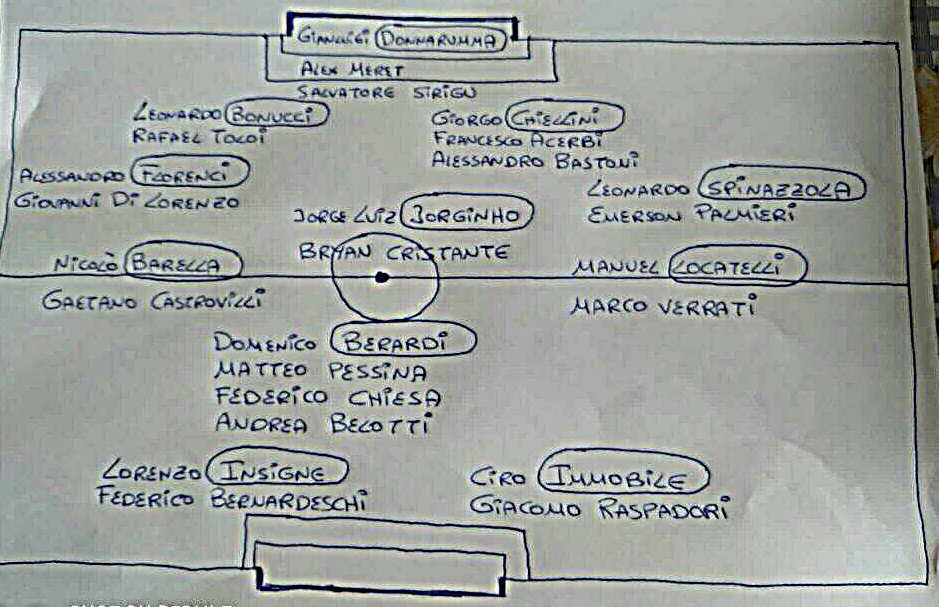 GIANLUIGI DONNARUMMA
ALEX MERET
SALVATORE SIRIGU
LEONARDO BONUCCI
RAFAEL TOLOI
GIORGO CHIELLINI
FRANCESCO ACERBI
ALESSANDRO BASTONI
ALESSANDRO FLORENCI
GIOVANNI DI LORENZO
LEONARDO SPINAZZOLA
EMERSON PALMIERI
JORGE LUIZ JORGINHO
BRYAN CRISTANTE
NICOLÒ BARELLA
GAETANO CASTROVILLI
MANUEL LOCATELLI
MARCO VERRATI
DOMENICO BERARDI
MATTEO PESSINA
FEDERICO CHIESA
ANDREA BELOTTI
LORENZO INSIGNE
FEDERICO BERNARDESCHI
CIRO IMMOBILE
GIACOMO RASPADORI